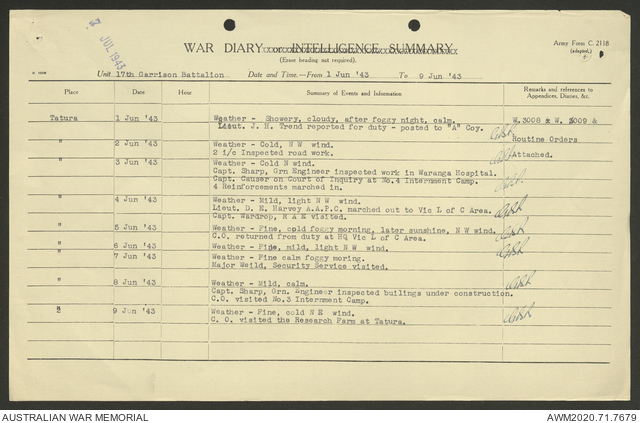 2 JUL 1943
WAR DIARY or INTELLIGENCE SUMMARY
(Erase heading not required).
Army Form C. 2118
(adapted.)
Unit 17th Garrison Battalion Date and Time.—From 1 Jun '43 To 9 Jun '43
Place Date Hour Summary of Events and Information Remarks and references to Appendices, Diaries, &c.
Tatura 1 Jun '43 Weather - Showery, cloudy, after foggy night, calm. W.3008 & W. 3009 &
Lieut. J. H. Trend reported for duty - posted to "A" Coy.
Routine Orders
" 2 Jun '43 Weather - Cold, N W wind. Attached.
2 i/c Inspected road work.
" 3 Jun '43 Weather - Cold N wind.
Capt. Sharp, Grn Engineer inspected work in Waranga Hospital.
Capt. Causer on Court of Inquiry at No.4 Internment Camp.
4 Reinforcements marched in.
" 4 Jun '43 Weather - Mild, light N W wind.
Lieut. D. E. Harvey A.A.P.C. marched out to Vic L of C Area.
Capt. Wardrop, R A E visited.
" 5 Jun '43 Weather - Fine, cold foggy morning, later sunshine, N W wind.
C.O. returned from duty at HQ Vic L of C Area.
" 6 Jun '43 Weather - Fine, mild, light N W wind.
" 7 Jun '43 Weather - Fine calm foggy moring.
Major Weild, Security Service visited.
" 8 Jun '43 Weather - Mild, calm.
Capt. Sharp, Grn. Engineer inspected builings under construction.
C.O. visited No.3 Internment Camp.
" 9 Jun '43 Weather - Fine, cold N E wind.
C. O. visited the Research Farm at Tatura.
AUSTRALIAN WAR MEMORIAL AWM2020.71.7679